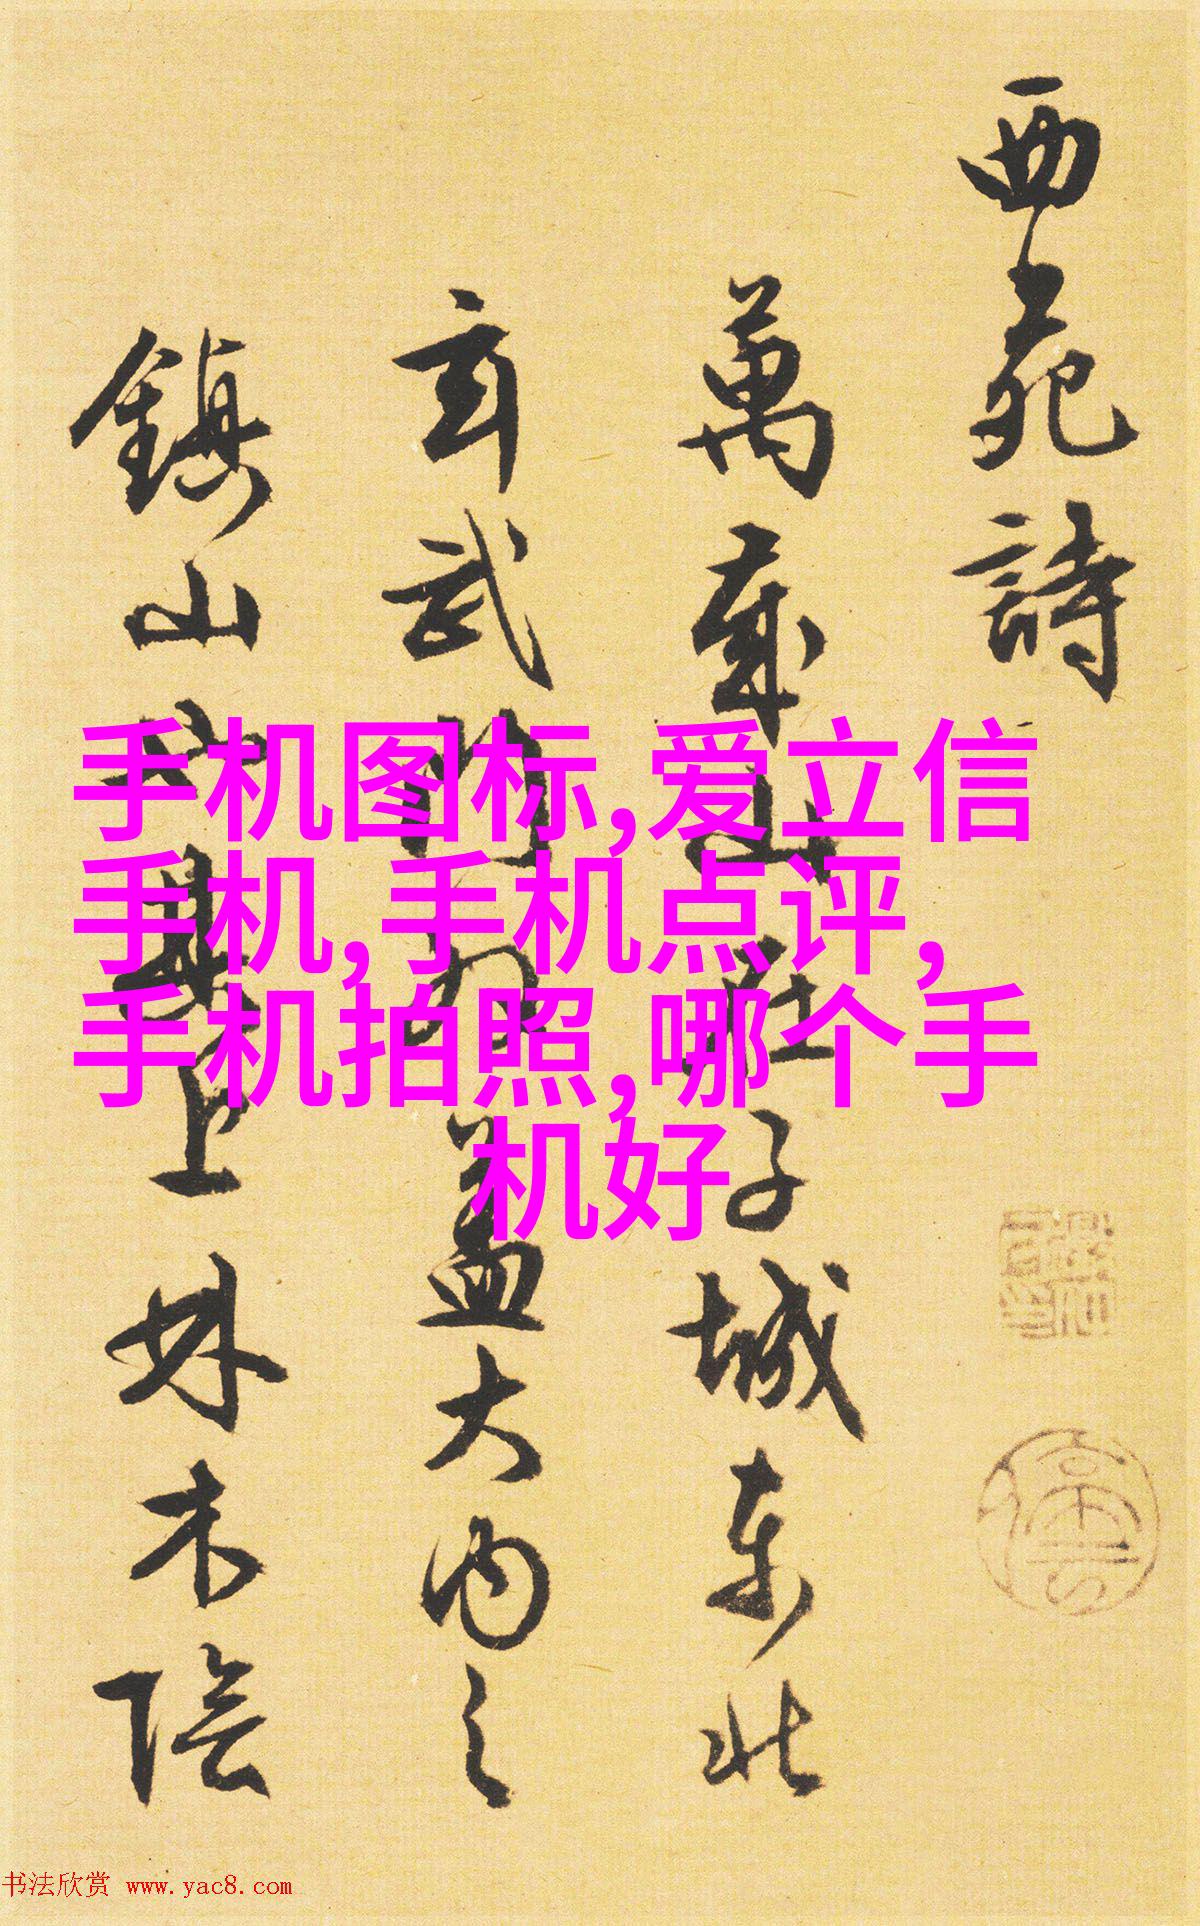 西苑詩
萬歲山在子城東北
玄武門外蓋大內之
鎮山也其上林木陰
手机图标,爱立信
手机,手机点评,
手机拍照,哪个手
机好
书法欣赏 www.yac8.com